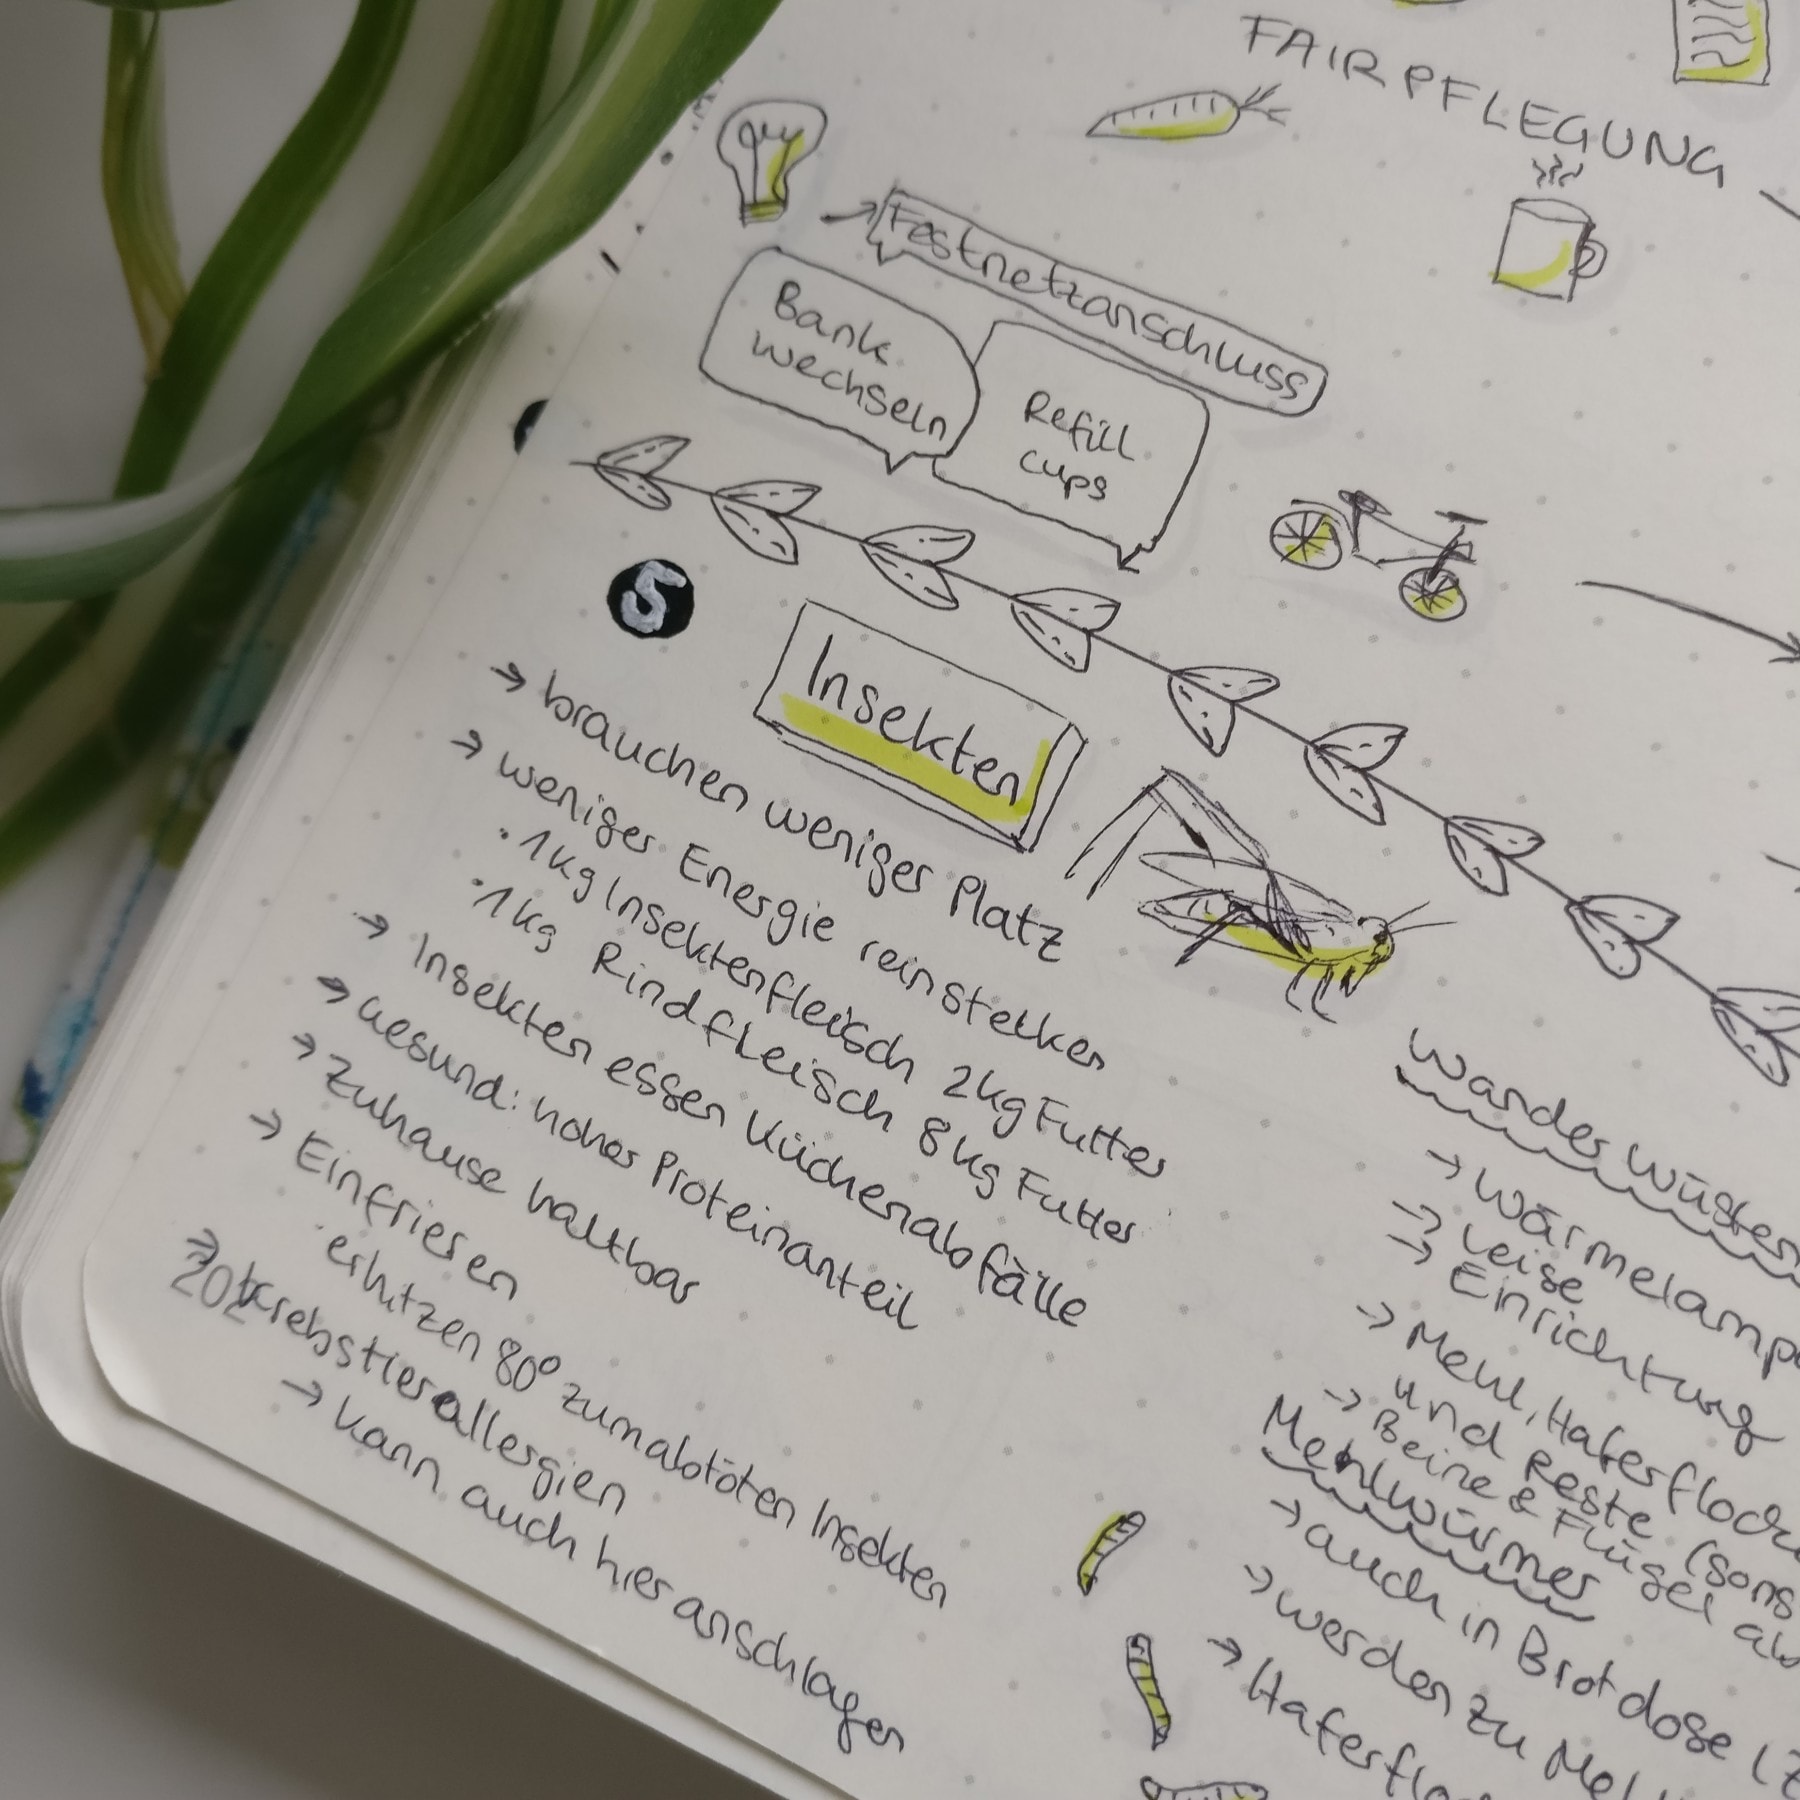 FAIRPFLEGUNG
→ Festnetzanschluss
Bank
wechseln
Refill
cups
5
Insekten
→ brauchen weniger Platz
→ weniger Energie reinstecken
· 1kg Insektenfleisch 2kg Futter
· 1kg Rindfleisch 8kg Futter
→ Insekten essen Küchenabfälle
→ Gesund: hoher Proteinanteil
→ Zuhause haltbar
→ Einfrieren
· erhitzen 80° zum abtöten Insekten
→ Krebstierallergien
→ kann auch hier anschlagen
202
Wanderwüsten
→ Wärmelamp
→ Leise
→ Einrichtung
→ Mehl, Haferflock
und Reste (sons
→ Beine & Flügel ab
Mehlwürmer
→ auch in Brotdose (
→ werden zu
→ Haferfloc